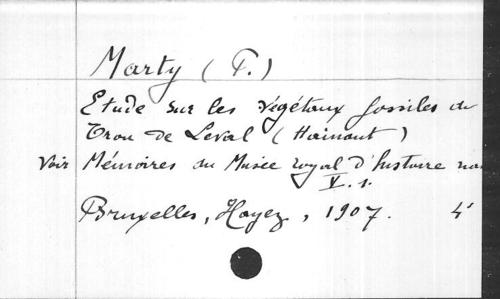 Marty (F.)
Etude sur les végétaux fossiles du
Trou de Leval (Hainaut)
Voir Mémoires du Musée royal d'histoire na
V. 1.
Bruxelles, Hayez, 1907. 4°